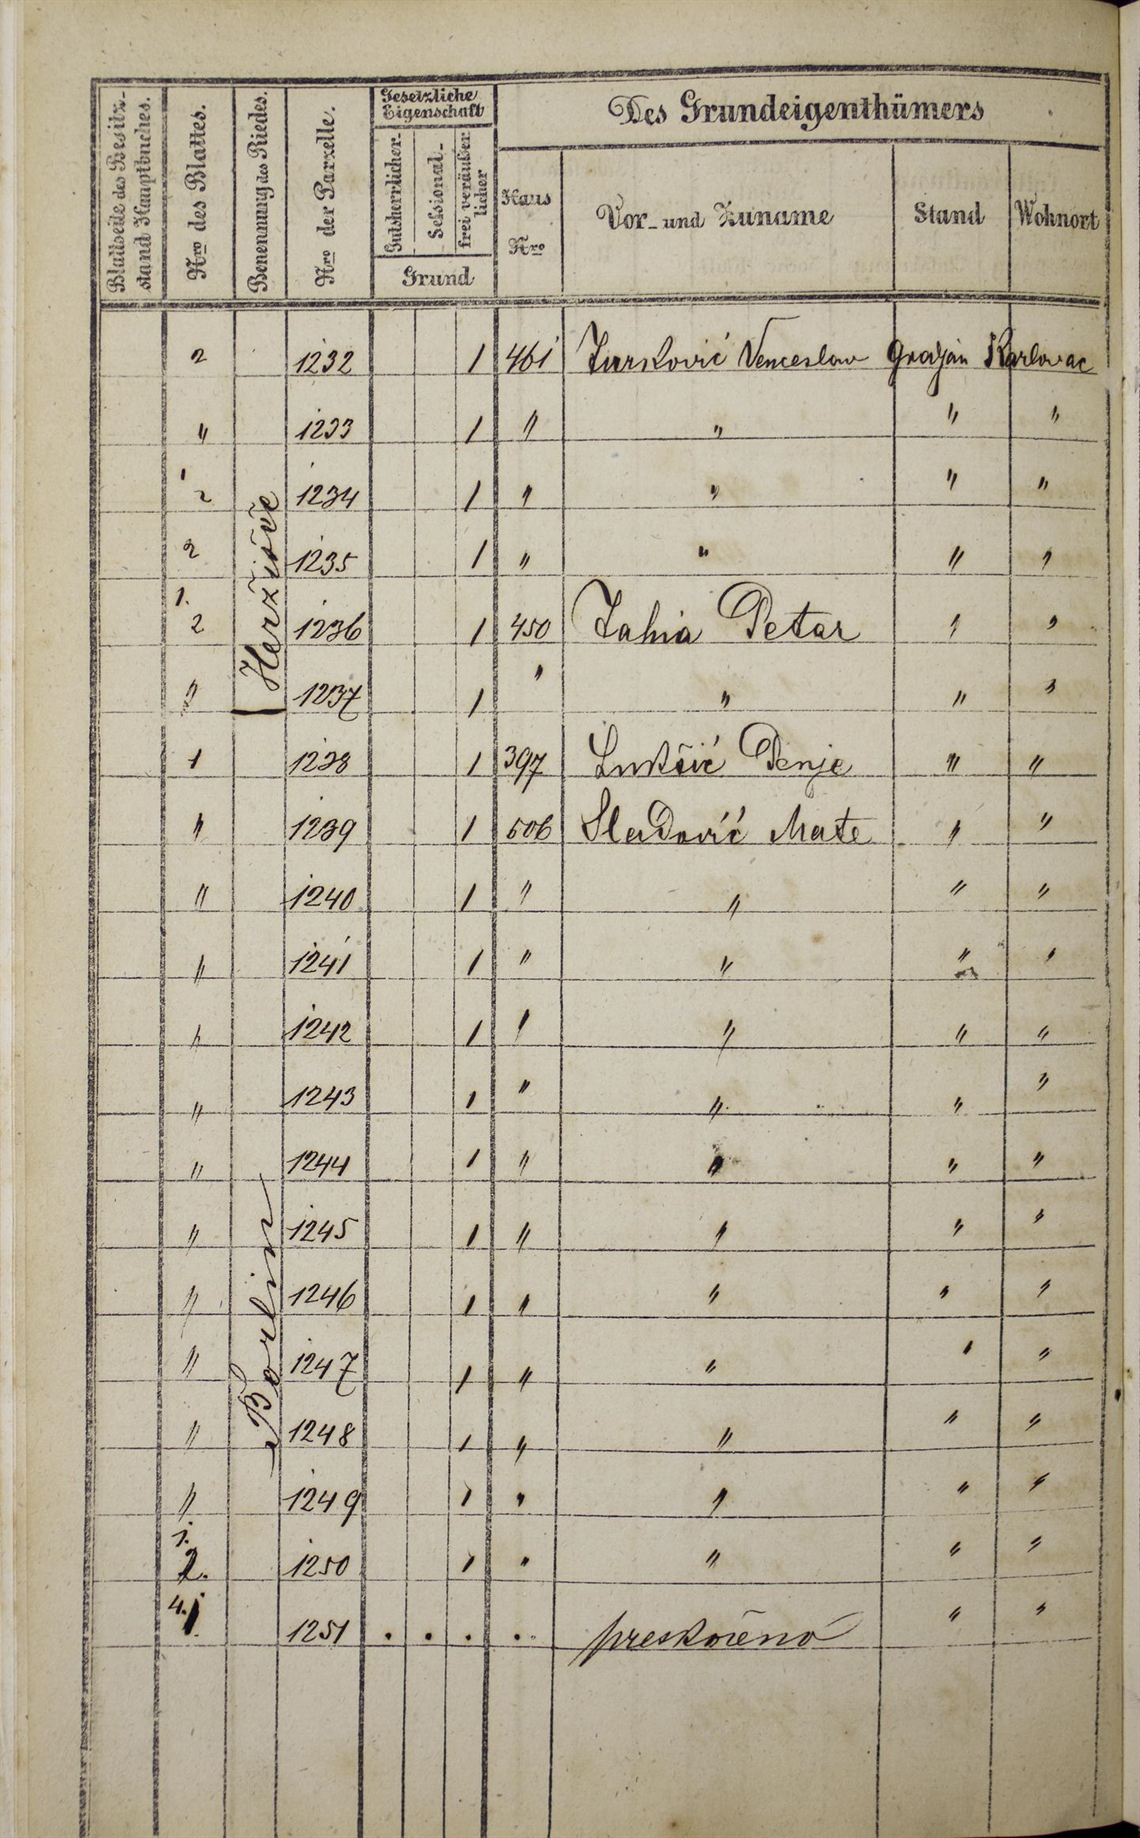 Blattseite des Besitz-
stand Hauptbuches.
Nro des Blattes.
Benennung des Riedes.
Nro der Parzelle.
Gesetzliche
Eigenschaft
Gutsherrlicher-
Sessional-
frei veräußer
licher
Grund
Des Grundeigenthümers
Haus
Nro
Vor- und Zuname
Stand
Wohnort
2 1232 1 461 Venceslav Gradjan Karlovac
" 1233 1 " " " "
1 2 1234 1 " " " "
2 1235 1 " " " "
1. 2 1236 1 450 Petar " "
" 1237 1 " " " "
1 1238 1 397 Lukšić " "
" 1239 1 506 Sladović Mate " "
" 1240 1 " " " "
" 1241 1 " " " "
" 1242 1 " " " "
" 1243 1 " " " "
" 1244 1 " " " "
" 1245 1 " " " "
" 1246 1 " " " "
" 1247 1 " " " "
" 1248 1 " " " "
" 1249 1 " " " "
1. 2. 1250 1 " " " "
4. 1. 1251 . . . . preskočeno " "
Borlin